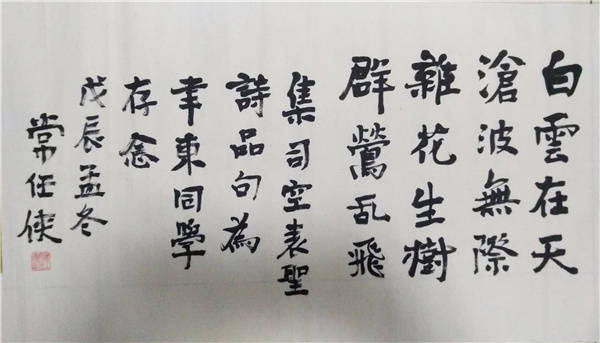 白雲在天
滄波無際
雜花生樹
群鶯乱飛
集司空表聖
詩品句為
幸東同學
存念
戊辰孟冬
常任侠